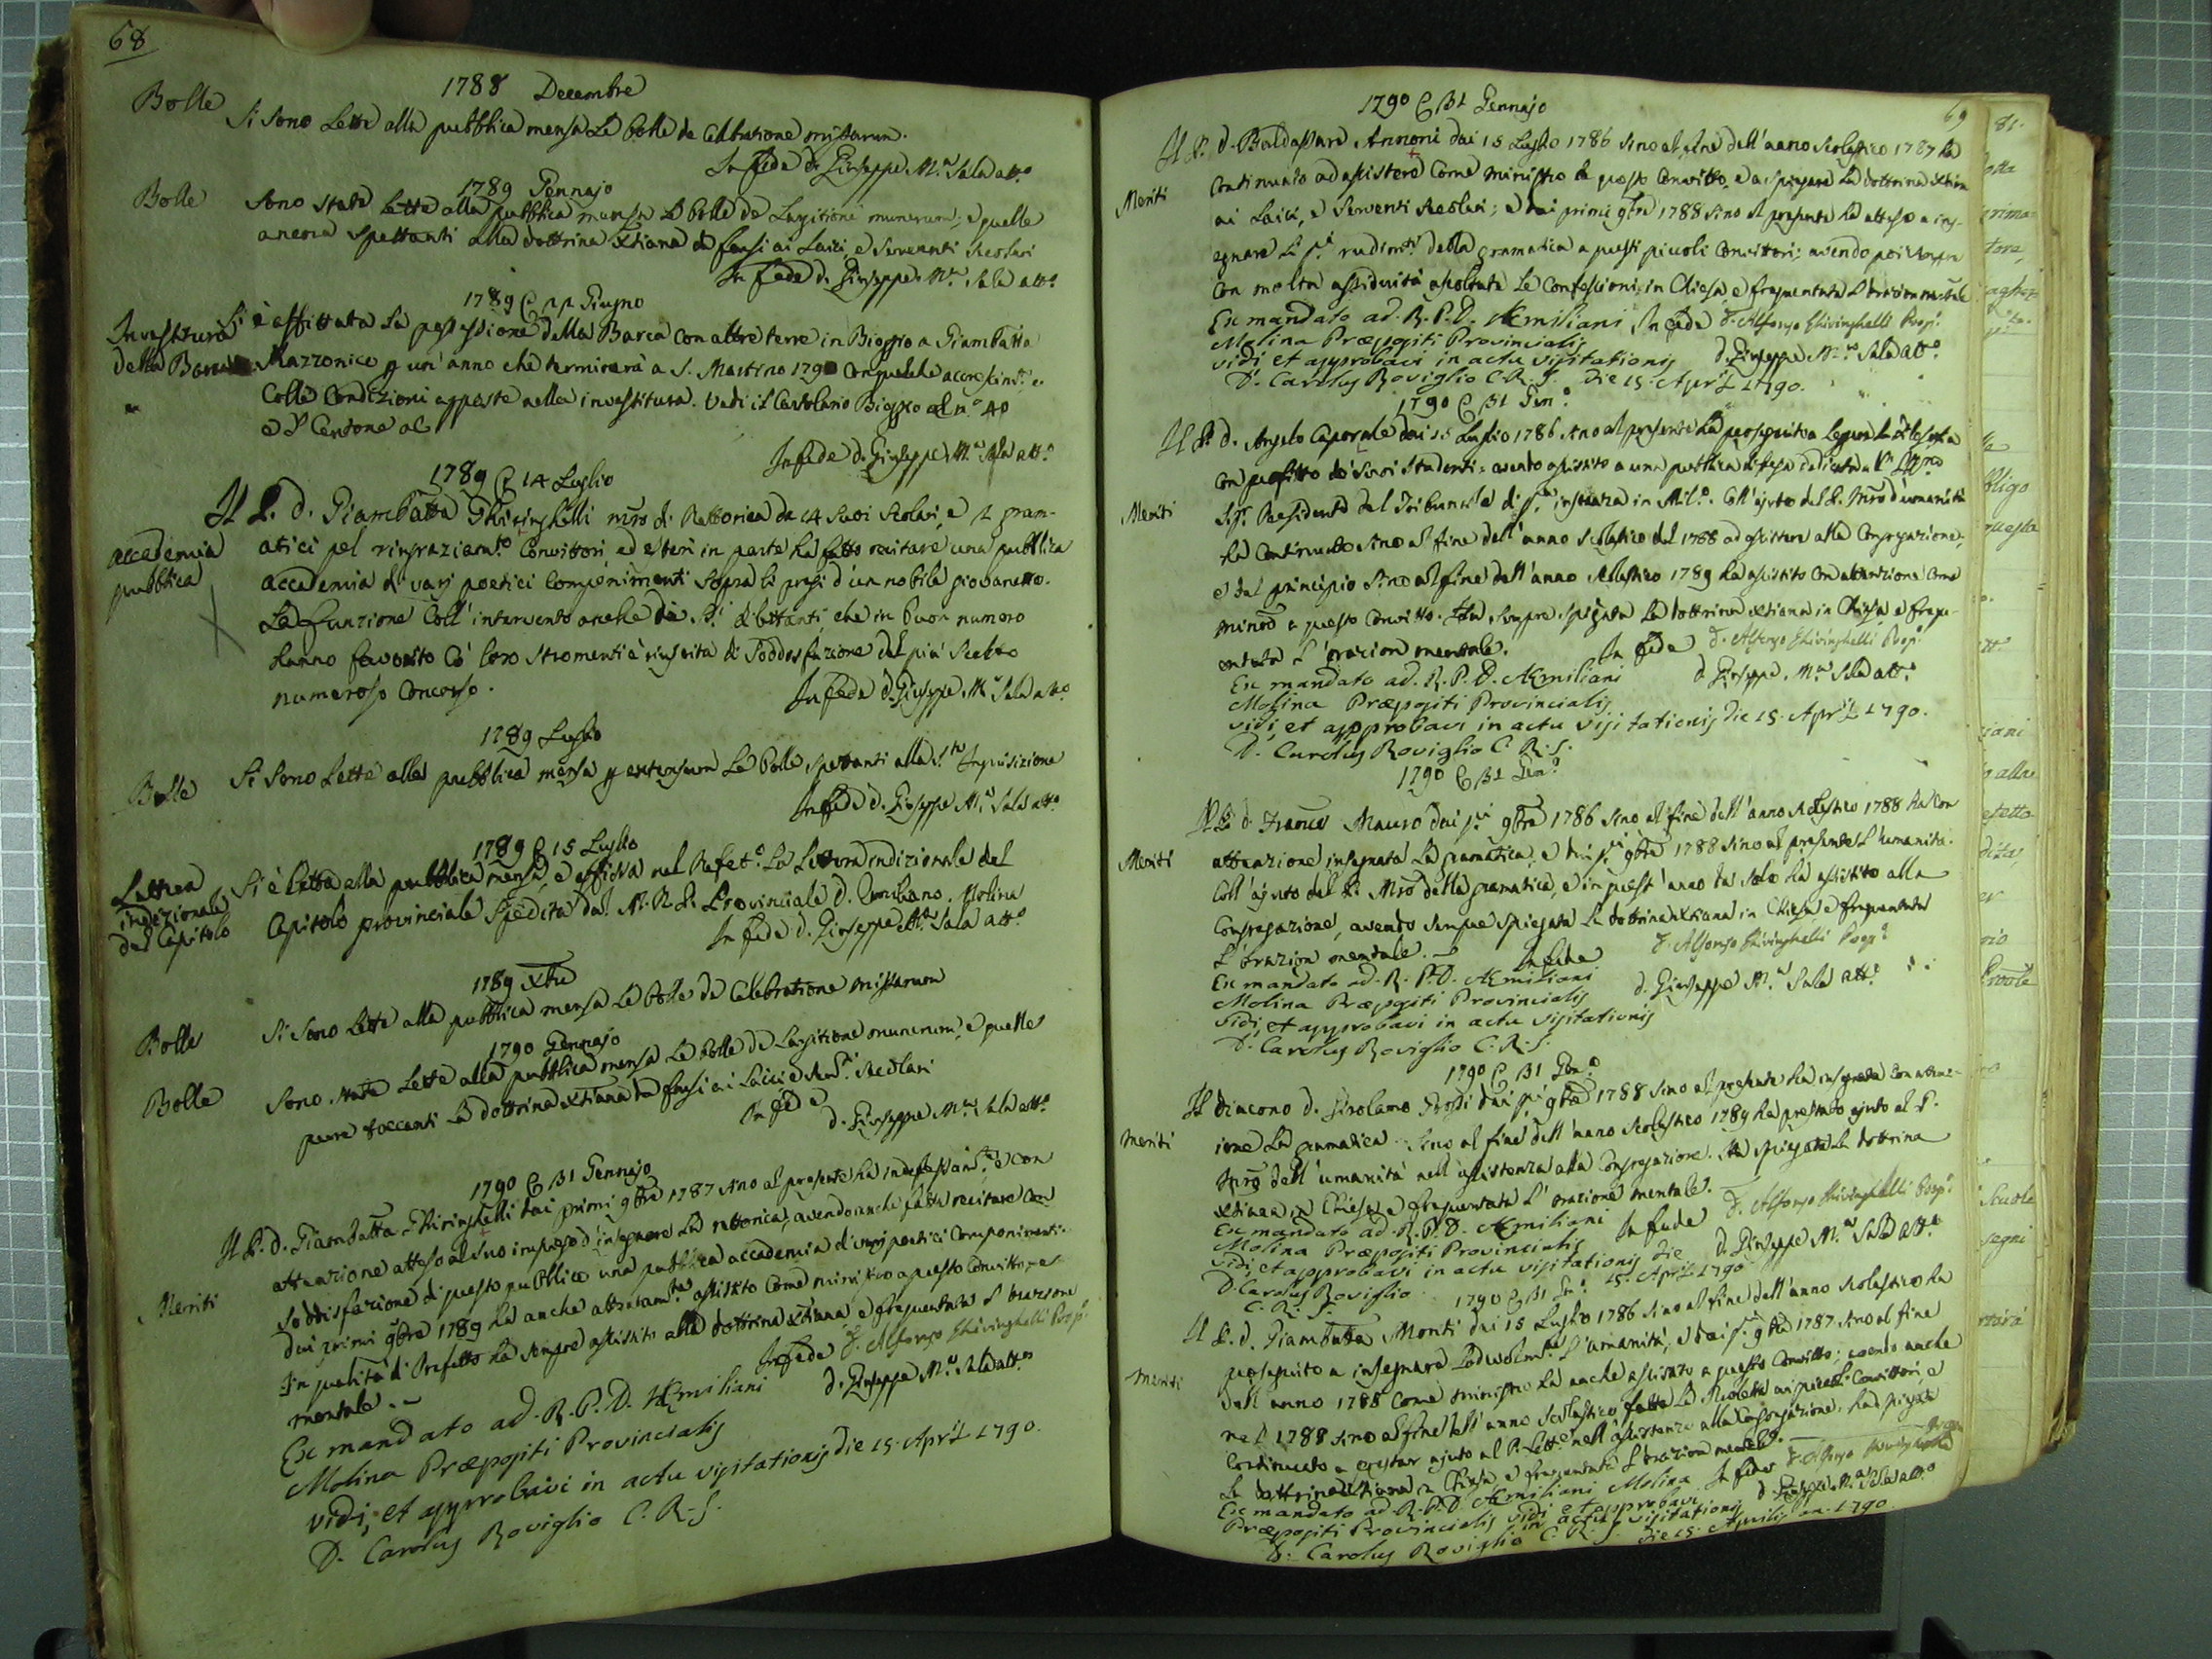 68
1788 Decembre
Bolle
Si sono Lette alla pubblica mensa Le bolle de Celebratione missarum.
In fede d. Giuseppe M.a Sala att.o
1789 Gennajo
Bolle
Sono state Lette alla pubblica mensa Le bolle de Largitione munerum; e quelle
ancora spettanti alla dottrina Xtiana da farsi ai Laici, e Serventi Secolari
In fede d. Giuseppe M.a Sala att.o
1789 Giugno
Investitura
della Barca
Si è affittata La possessione della Barca con altre terre in Bioggio a Giambatta
Mazzonico p un'anno che terminerà a S. Martino 1790 con qualche
colle Condizioni apposte nella investitura. Vedi il Cartolario Bioggio al n.o 40
e Centone al
In fede d. Giuseppe M.a Sala att.o
1789 14 Luglio
accademia
pubblica
Il P. d. Giambatta Ghiringhelli mro di Rettorica da 14 Suoi Scolari, e 2 gram-
atici pel ringraziam.to Convittori, ed esteri in parte ha fatto recitare una pubblica
accademia di varj poetici Componimenti sopra li pregi d'un nobile giovanetto.
La funzione coll'intervento anche de S.i dilettanti, che in buon numero
hanno favorito Co' loro stromenti è riuscita di Soddosfazione del più Scelto
numeroso Concorso.
In fede d. Giuseppe M.a Sala att.o
1789 Luglio
Bolle
Si sono Lette alla pubblica mensa p extensum Le bolle spettanti alla S.ta Inquisizione
In fede d. Giuseppe M.a Sala att.o
1789 15 Luglio
Lettera
indizionale
del Capitolo
Si è Letta alla pubblica mensa, e affissa nel Refet.o La Lettera indizionale del
Capitolo provinciale Spedita dal M. R. P. Provinciale d. Emiliano Molina
In fede d. Giuseppe M.a Sala att.o
1789 Xbre
Bolle
Si sono Lette alla pubblica mensa Le bolle de Celebratione missarum
1790 Gennajo
Bolle
Sono state Lette alla pubblica mensa Le bolle de Largitione munerum, e quelle
pure toccanti La dottrina Xtiana da farsi ai Laici e Serv.ti Secolari
In fede
d. Giuseppe M.a Sala att.o
1790 31 Gennajo
Meriti
Il P. d. Giambatta Ghiringhelli dai primi 9bre 1787 sino al presente ha indefessam.te e con
attenzione atteso al suo impiego d'insegnare La rettorica, avendo anche fatta recitare con
Soddisfazione di questo pubblico una pubblica accademia di varj poetici Componimenti.
Dai primi 9bre 1789 ha anche attentam.te assistito Come ministro a questo Convitto, e
In qualità di Prefetto ha sempre assistito alla dottrina Xtiana e frequentata L'orazione
mentale.
In fede D. Alfonso Ghiringhelli Prop.o
d. Giuseppe M.a Sala att.o
Ex mandato ad. R. P. D. Æmiliani
Molina Præpositi Provincialis
vidi, et approbavi in actu visitationis die 15. April 1790.
D. Carolus Roviglio C. R. S.
69
1790 31 Gennajo
Meriti
Il P. d. Baldassare Annoni dai 15 Luglio 1786 sino al fine dell'anno scolastico 1787 ha
Continuato ad assistere Come ministro a questo Convitto, e a spiegare La dottrina Xtiana
ai Laici, e Serventi Secolari; e dai primi 9bre 1788 sino al presente ha atteso a ins-
egnare Li p.i rudim.ti della gramatica a questi piccoli Convittori; avendo poi sempre
con molta assiduità ascoltate Le Confessioni in Chiesa, e frequentata L'orazion mentale
Ex mandato ad. R. P. D. Æmiliani In fede D. Alfonso Ghiringhelli Prop.o
Molina Præpositi Provincialis
vidi, et approbavi in actu visitationis d. Giuseppe M.a Sala att.o
D. Carolus Roviglio C. R. S. Die 15. April 1790.
1790 31 Gen.o
Meriti
Il P. d. Angelo Caporale dai 15 Luglio 1786 sino al presente ha proseguito a Leggere La Filosofia
con profitto de' suoi Studenti: avendo assistito a una pubblica difesa dedicata al
Sig.r Presidente del Tribunale di p.a instanza in Mil.o. Coll'ajuto del P. Mro d'umanità
ha Continuato sino al fine dell'anno scolastico del 1788 ad assistere alla Congregazione;
e dal principio sino al fine dell'anno scolastico 1789 ha assistito con attenzione Come
a questo Convitto. Ha sempre spiegata La dottrina Xtiana in Chiesa, e frequ-
entata L'orazion mentale. In fede D. Alfonso Ghiringhelli Prop.o
Ex mandato ad. R. P. D. Æmiliani d. Giuseppe M.a Sala att.o
Molina Præpositi Provincialis
vidi, et approbavi in actu visitationis die 15. April 1790.
D. Carolus Roviglio C. R. S.
1790 31 Gen.o
Meriti
Il P. d. Franco Mauro dai p.i 9bre 1786 sino al fine dell'anno scolastico 1788 ha con
attenzione insegnata La gramatica, e dai p.i 9bre 1788 sino al presente L'umanità.
Coll'ajuto del P. Mro della gramatica, e in quest'anno da solo ha assistito alla
Congregazione, avendo sempre spiegata La dottrina Xtiana in Chiesa e frequentata
L'orazion mentale. In fede D. Alfonso Ghiringhelli Prop.o
Ex mandato ad. R. P. D. Æmiliani
Molina Præpositi Provincialis d. Giuseppe M.a Sala att.o
vidi, et approbavi in actu visitationis
D. Carolus Roviglio C. R. S.
1790 31 Gen.o
Meriti
Il Diacono d. Girolamo Rossi dai p.i 9bre 1788 sino al presente ha insegnata con atten-
zione La gramatica. Sino al fine dell'anno scolastico 1789 ha prestato ajuto al P.
Mro dell'umanità nell'assistenza alla Congregazione. Ha spiegata La dottrina
Xtiana in Chiesa, e frequentata L'orazione mentale.
Ex mandato ad. R. P. D. Æmiliani In fede D. Alfonso Ghiringhelli Prop.o
Molina Præpositi Provincialis
vidi, et approbavi in actu visitationis die d. Giuseppe M.a Sala att.o
D. Carolus Roviglio 15. April 1790
C. R. S.
1790 31 Gen.o
Meriti
Il P. d. Giambatta Monti dai 15 Luglio 1786 sino al fine dell'anno scolastico ha
proseguito a insegnare Lodevolm.te L'umanità, e dai p.i 9bre 1787 sino al fine
dell'anno 1788 Come ministro ha anche assistito a questo Convitto; avendo anche
nel 1788 sino al fine dell'anno scolastico fatta La scoletta ai piccoli Convittori, e
Continuato a prestar ajuto al P. Lett.e nell'assistenza alla Congregazione. Ha spiegata
La dottrina Xtiana in Chiesa, e frequentata L'orazion mentale.
Ex mandato ad. R. P. D. Æmiliani Molina In fede D. Alfonso Ghiringhelli Prop.o
Præpositi Provincialis vidi et approbavi d. Giuseppe M.a Sala att.o
in actu visitationis
D. Carolus Roviglio C. R. S. die 15. Aprilis an. 1790
81.
bligo
questa
ziani
alla
Scuole
segni